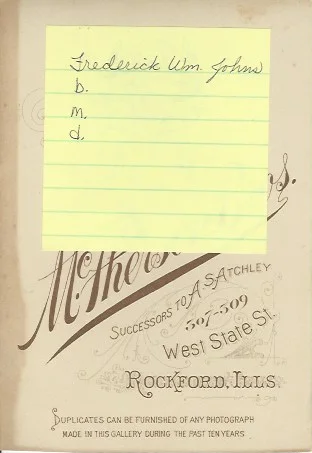 Frederick Wm. Johns
b.
m.
d.
Successors to A. S. Atchley
307-309
West State St.
Rockford, Ills
Duplicates can be furnished of any photograph
made in this gallery during the past ten years